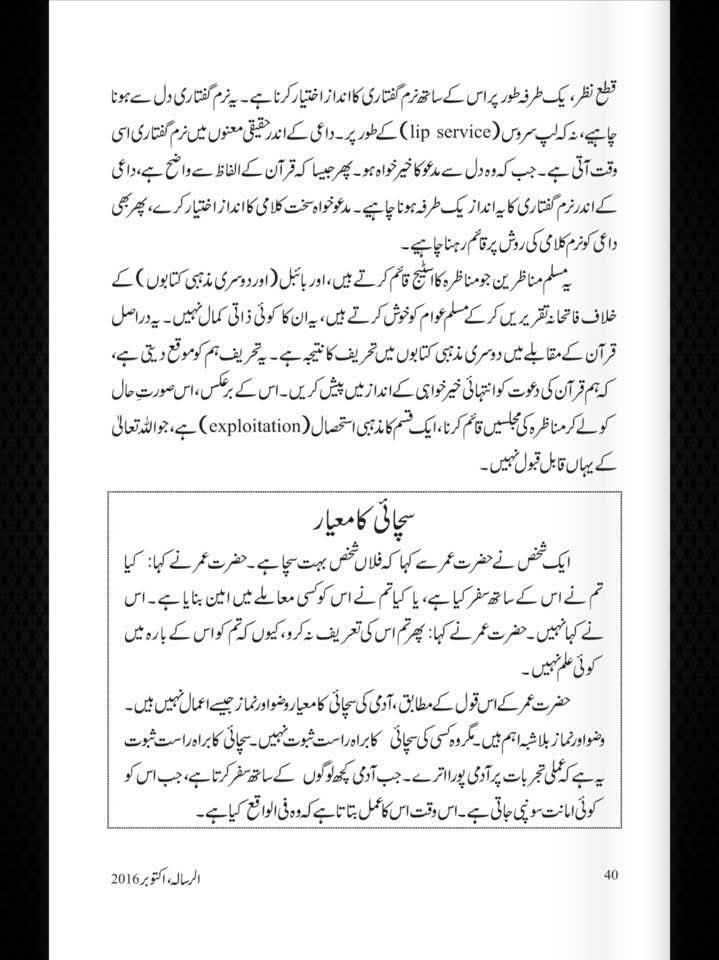 قطع نظر، یک طرفہ طور پر اس کے ساتھ نرم گفتاری کا انداز اختیار کرنا ہے۔ یہ نرم گفتاری دل سے ہونا
چاہیے، نہ کہ لپ سروس (lip service) کے طور پر۔ داعی کے اندر حقیقی معنوں میں نرم گفتاری اسی
وقت آتی ہے۔ جب کہ وہ دل سے مدعو کا خیر خواہ ہو۔ پھر جیسا کہ قرآن کے الفاظ سے واضح ہے، داعی
کے اندر نرم گفتاری کا یہ انداز یک طرفہ ہونا چاہیے۔ مدعو خواہ سخت کلامی کا انداز اختیار کرے، پھر بھی
داعی کو نرم کلامی کی روش پر قائم رہنا چاہیے۔
یہ مسلم مناظرین جو مناظرہ کا اسٹیج قائم کرتے ہیں، اور بائبل (اور دوسری مذہبی کتابوں) کے
خلاف فاتحانہ تقریریں کرکے مسلم عوام کو خوش کرتے ہیں، یہ ان کا کوئی ذاتی کمال نہیں۔ یہ دراصل
قرآن کے مقابلے میں دوسری مذہبی کتابوں میں تحریف کا نتیجہ ہے۔ یہ تحریف ہم کو موقع دیتی ہے،
کہ ہم قرآن کی دعوت کو انتہائی خیر خواہی کے انداز میں پیش کریں۔ اس کے برعکس، اس صورتِ حال
کو لے کر مناظرہ کی مجلسیں قائم کرنا، ایک قسم کا مذہبی استحصال (exploitation) ہے، جو اللہ تعالیٰ
کے یہاں قابل قبول نہیں۔
سچائی کا معیار
ایک شخص نے حضرت عمر سے کہا کہ فلاں شخص بہت سچا ہے۔ حضرت عمر نے کہا: کیا
تم نے اس کے ساتھ سفر کیا ہے، یا کیا تم نے اس کو کسی معاملے میں امین بنایا ہے۔ اس
نے کہا نہیں۔ حضرت عمر نے کہا: پھر تم اس کی تعریف نہ کرو، کیوں کہ تم کو اس کے بارہ میں
کوئی علم نہیں۔
حضرت عمر کے اس قول کے مطابق، آدمی کی سچائی کا معیار وضو اور نماز جیسے اعمال نہیں ہیں۔
وضو اور نماز بلاشبہ اہم ہیں۔ مگر وہ کسی کی سچائی کا براہ راست ثبوت نہیں۔ سچائی کا براہ راست ثبوت
یہ ہے کہ عملی تجربات پر آدمی پورا اترے۔ جب آدمی کچھ لوگوں کے ساتھ سفر کرتا ہے، جب اس کو
کوئی امانت سونپی جاتی ہے۔ اس وقت اس کا عمل بتاتا ہے کہ وہ فی الواقع کیا ہے۔
40
الرسالہ، اکتوبر 2016